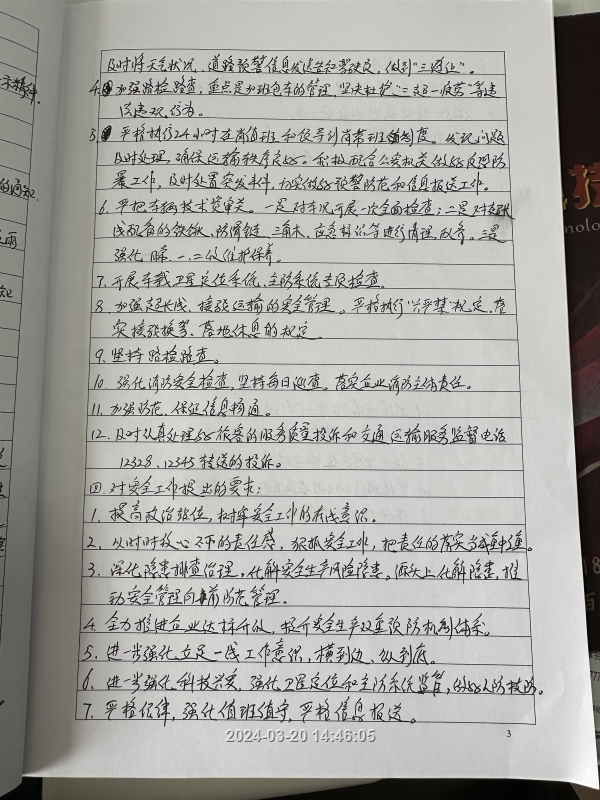 及时将天气状况、道路预警信息发送告知驾驶员，做到"三通让"。
4.加强路检路查，重点是加班包车的管理，坚决杜绝"三超一疲劳"等违
法违规行为。
5.严格执行24小时在岗值班和领导到岗带班制度。发现问题
及时处理，确保运输秩序良好。积极配合公安机关做好反恐防
暴工作，及时处置突发事件，切实做好预警防范和信息报送工作。
6.严把车辆技术质量关。一是对车况开展一次全面检查；二是对
线配备的铁锹、防滑链、三角木、应急等进行清理
强化 一、二级维护保养。
7.开展车载卫星定位系统、主防系统专项检查。
8.加强超长线、接驳运输的安全管理。严格执行"六严禁"规定，落
实接驳换驾、落地休息的规定。
9.坚持路检路查。
10.强化消防安全检查，坚持每日巡查，落实企业消防主体责任。
11.加强防范、保证信息畅通。
12.及时认真处理好旅客的服务质量投诉和交通运输服务监督电话
12328、12345转送的投诉。
四.对安全工作提出的要求：
1.提高政治站位，树牢安全工作的红线意识。
2.以时时放心不下的责任感，狠抓安全工作，把责任的落实当成重中之重。
3.深化隐患排查治理，化解安全生产风险隐患。源头上化解隐患，推
动安全管理向事前防范管理。
4.全力推进企业达标升级，提升安全生产双重预防机制体系。
5.进一步强化立足一线工作意识，横到边、纵到底。
6.进一步强化科技兴安，强化卫星定位和主防系统监管，做好人防技防。
7.严格纪律，强化值班值守，严格信息报送。
2024-03-20 14:46:05
3